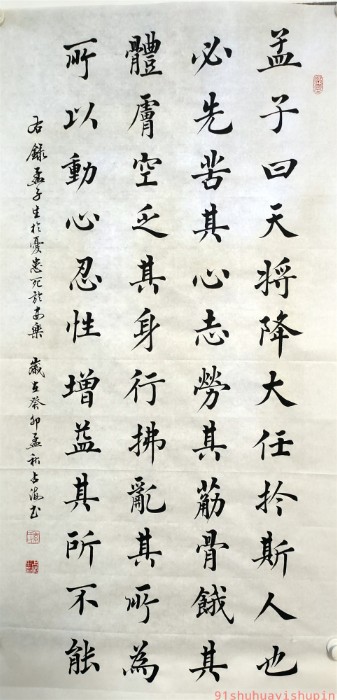 孟子曰天將降大任於斯人也
必先苦其心志勞其筋骨餓其
體膚空乏其身行拂亂其所為
所以動心忍性增益其所不能
右錄孟子生於憂患死於安樂 歲在癸卯孟秋占海書
91shuhuavishupin